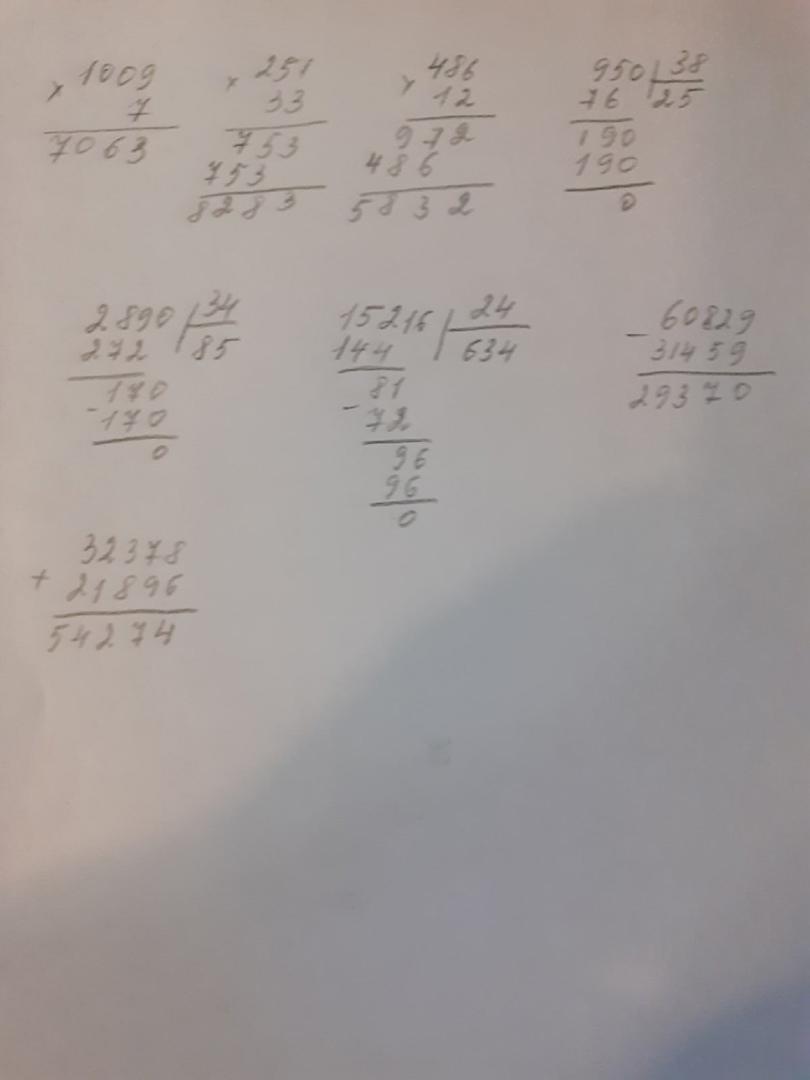 × 1009
7
7063
× 251
33
753
753
8283
× 486
12
972
486
5832
950 | 38
76 25
190
190
0
2890 | 34
272 85
170
- 170
0
15216 | 24
144 634
81
- 72
96
96
0
- 60829
31459
29370
32378
+ 21896
54274